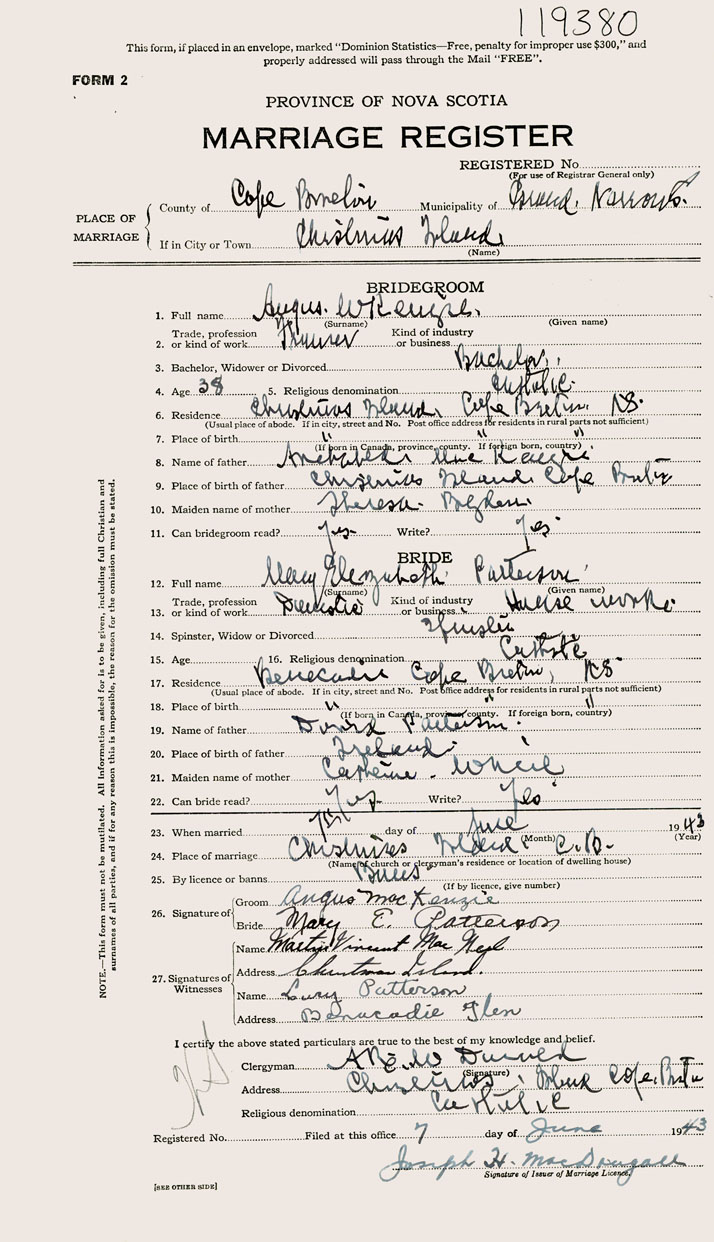 119380
This form, if placed in an envelope, marked "Dominion Statistics—Free, penalty for improper use $300," and
properly addressed will pass through the Mail "FREE".
FORM 2
PROVINCE OF NOVA SCOTIA
MARRIAGE REGISTER
REGISTERED No.
(For use of Registrar General only)
PLACE OF MARRIAGE
County of Cape Breton Municipality of Grand Narrows.
If in City or Town Christmas Island
(Name)
BRIDEGROOM
1. Full name Angus McKenzie.
(Surname) (Given name)
2. Trade, profession or kind of work Kind of industry or business
3. Bachelor, Widower or Divorced Bachelor
4. Age 38 5. Religious denomination Catholic
6. Residence Christmas Island, Cape Breton NS.
(Usual place of abode. If in city, street and No. Post office address for residents in rural parts not sufficient)
7. Place of birth " " "
(If born in Canada, province, county. If foreign born, country)
8. Name of father Archibald MacKenzie
9. Place of birth of father Christmas Island Cape Breton
10. Maiden name of mother Theresa
11. Can bridegroom read? Yes Write? Yes
BRIDE
12. Full name Mary Elizabeth Patterson
(Surname) (Given name)
13. Trade, profession or kind of work Domestic Kind of industry or business House work
14. Spinster, Widow or Divorced Spinster
15. Age 16. Religious denomination Catholic
17. Residence Benacadie Cape Breton, NS
(Usual place of abode. If in city, street and No. Post office address for residents in rural parts not sufficient)
18. Place of birth " " "
(If born in Canada, province, county. If foreign born, country)
19. Name of father David Patterson
20. Place of birth of father Ireland
21. Maiden name of mother Catherine McNeil
22. Can bride read? Yes Write? Yes
23. When married 7th day of June 1943
(Month) (Year)
24. Place of marriage Christmas Island. C.B.
(Name of church or clergyman's residence or location of dwelling house)
25. By licence or banns Banns
(If by licence, give number)
26. Signature of
Groom Angus MacKenzie
Bride Mary E. Patterson
27. Signatures of Witnesses
Name Martin Vincent Mac Neil
Address Christmas Island.
Name Lucy Patterson
Address Benacadie Glen
I certify the above stated particulars are true to the best of my knowledge and belief.
Clergyman
(Signature)
Address Christmas Island Cape Breton
Religious denomination Catholic
Registered No. Filed at this office 7 day of June 1943
Joseph H. MacDougall
Signature of Issuer of Marriage Licence.
[SEE OTHER SIDE]
NOTE.—This form must not be mutilated. All information asked for is to be given, including full Christian and
surnames of all parties, and if for any reason this is impossible, the reason for the omission must be stated.